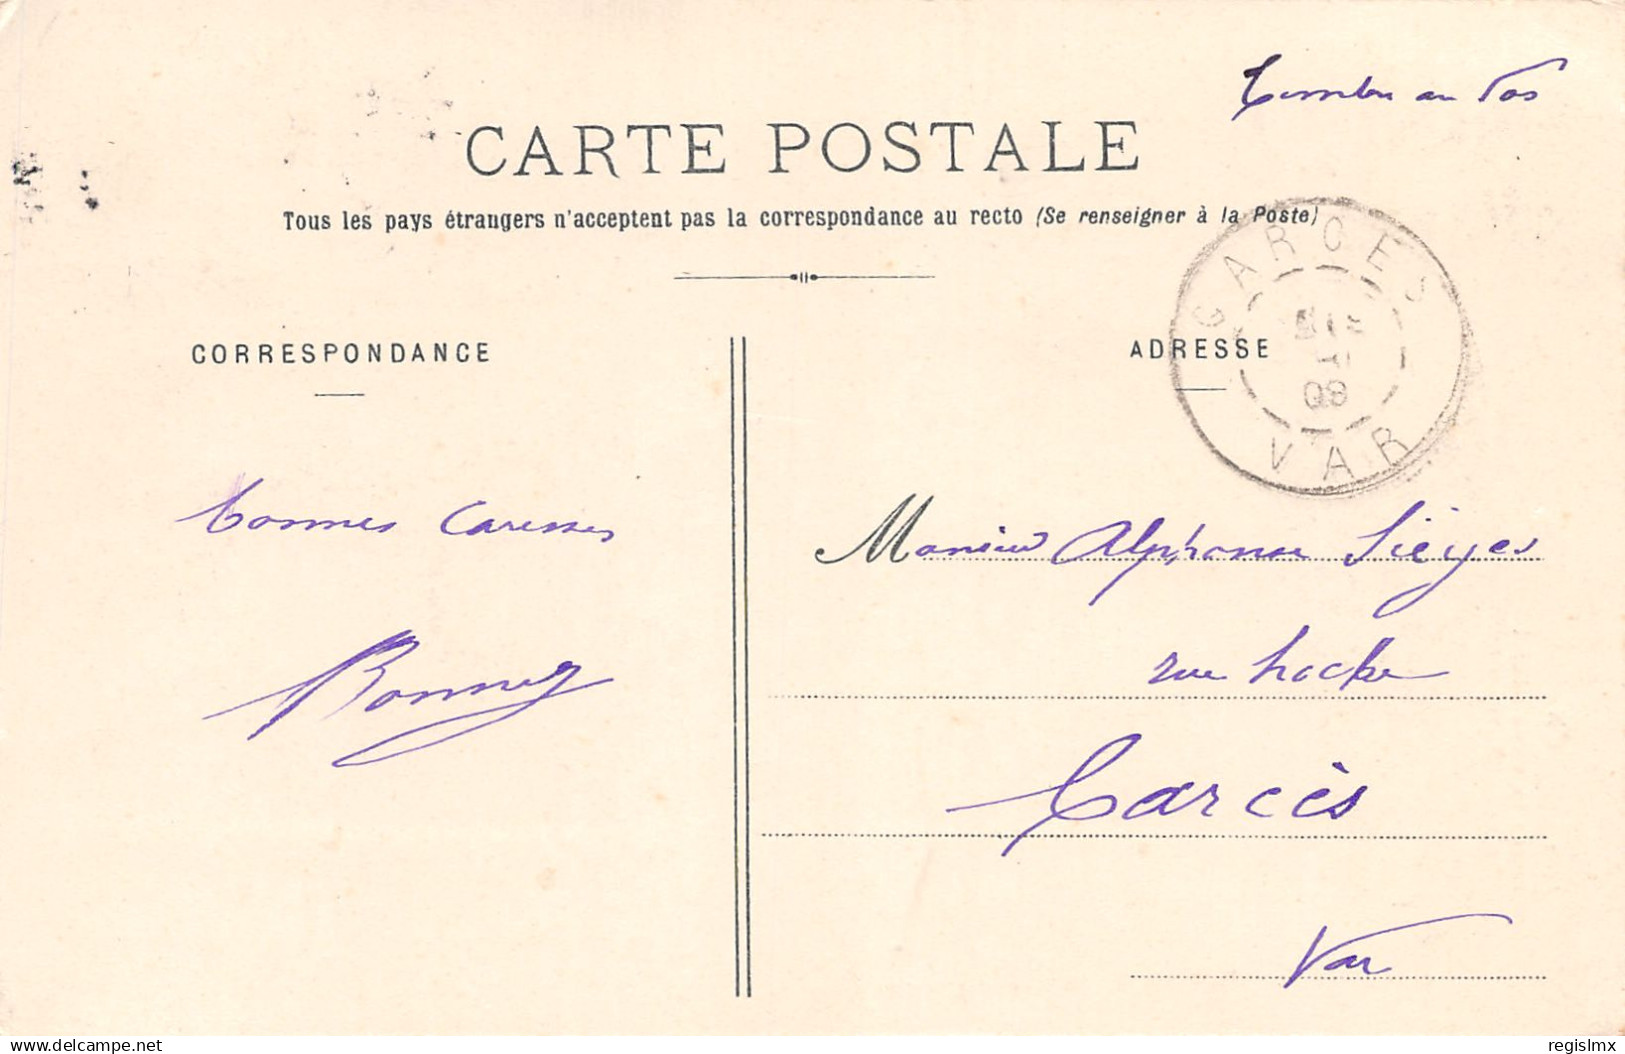 Timbre au dos
CARTE POSTALE
Tous les pays étrangers n'acceptent pas la correspondance au recto (Se renseigner à la Poste)
CARCES
08
VAR
CORRESPONDANCE
ADRESSE
bonnes caresses
Bonnet
Monsieur Alphonse Sièyes
rue
Carcès
Var
www.delcampe.net
regislmx